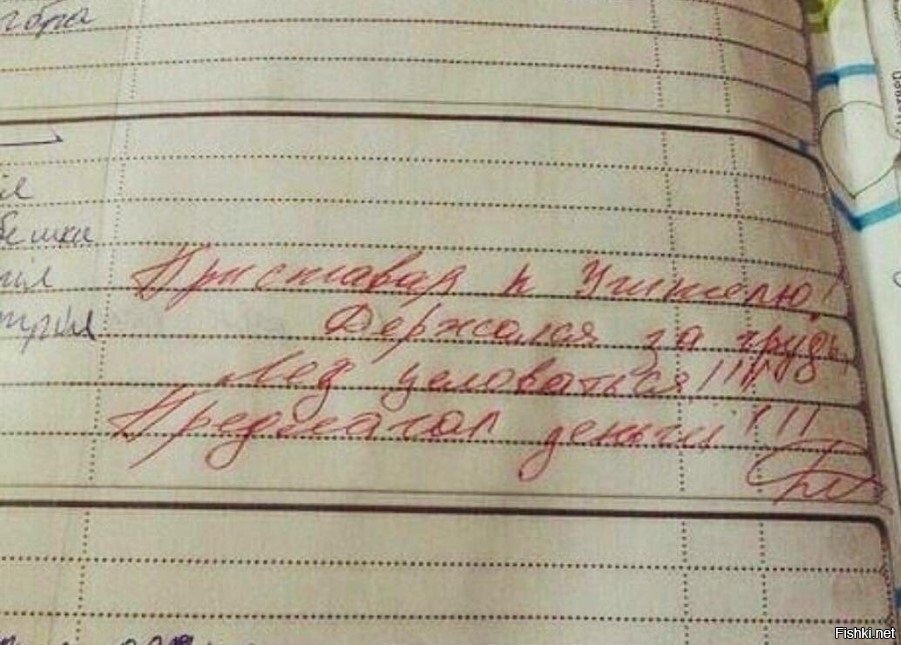 Приставал к Учителю!
Держался за грудь,
Лез целоваться!!!!
Предлагал деньги!!!
Fishki.net